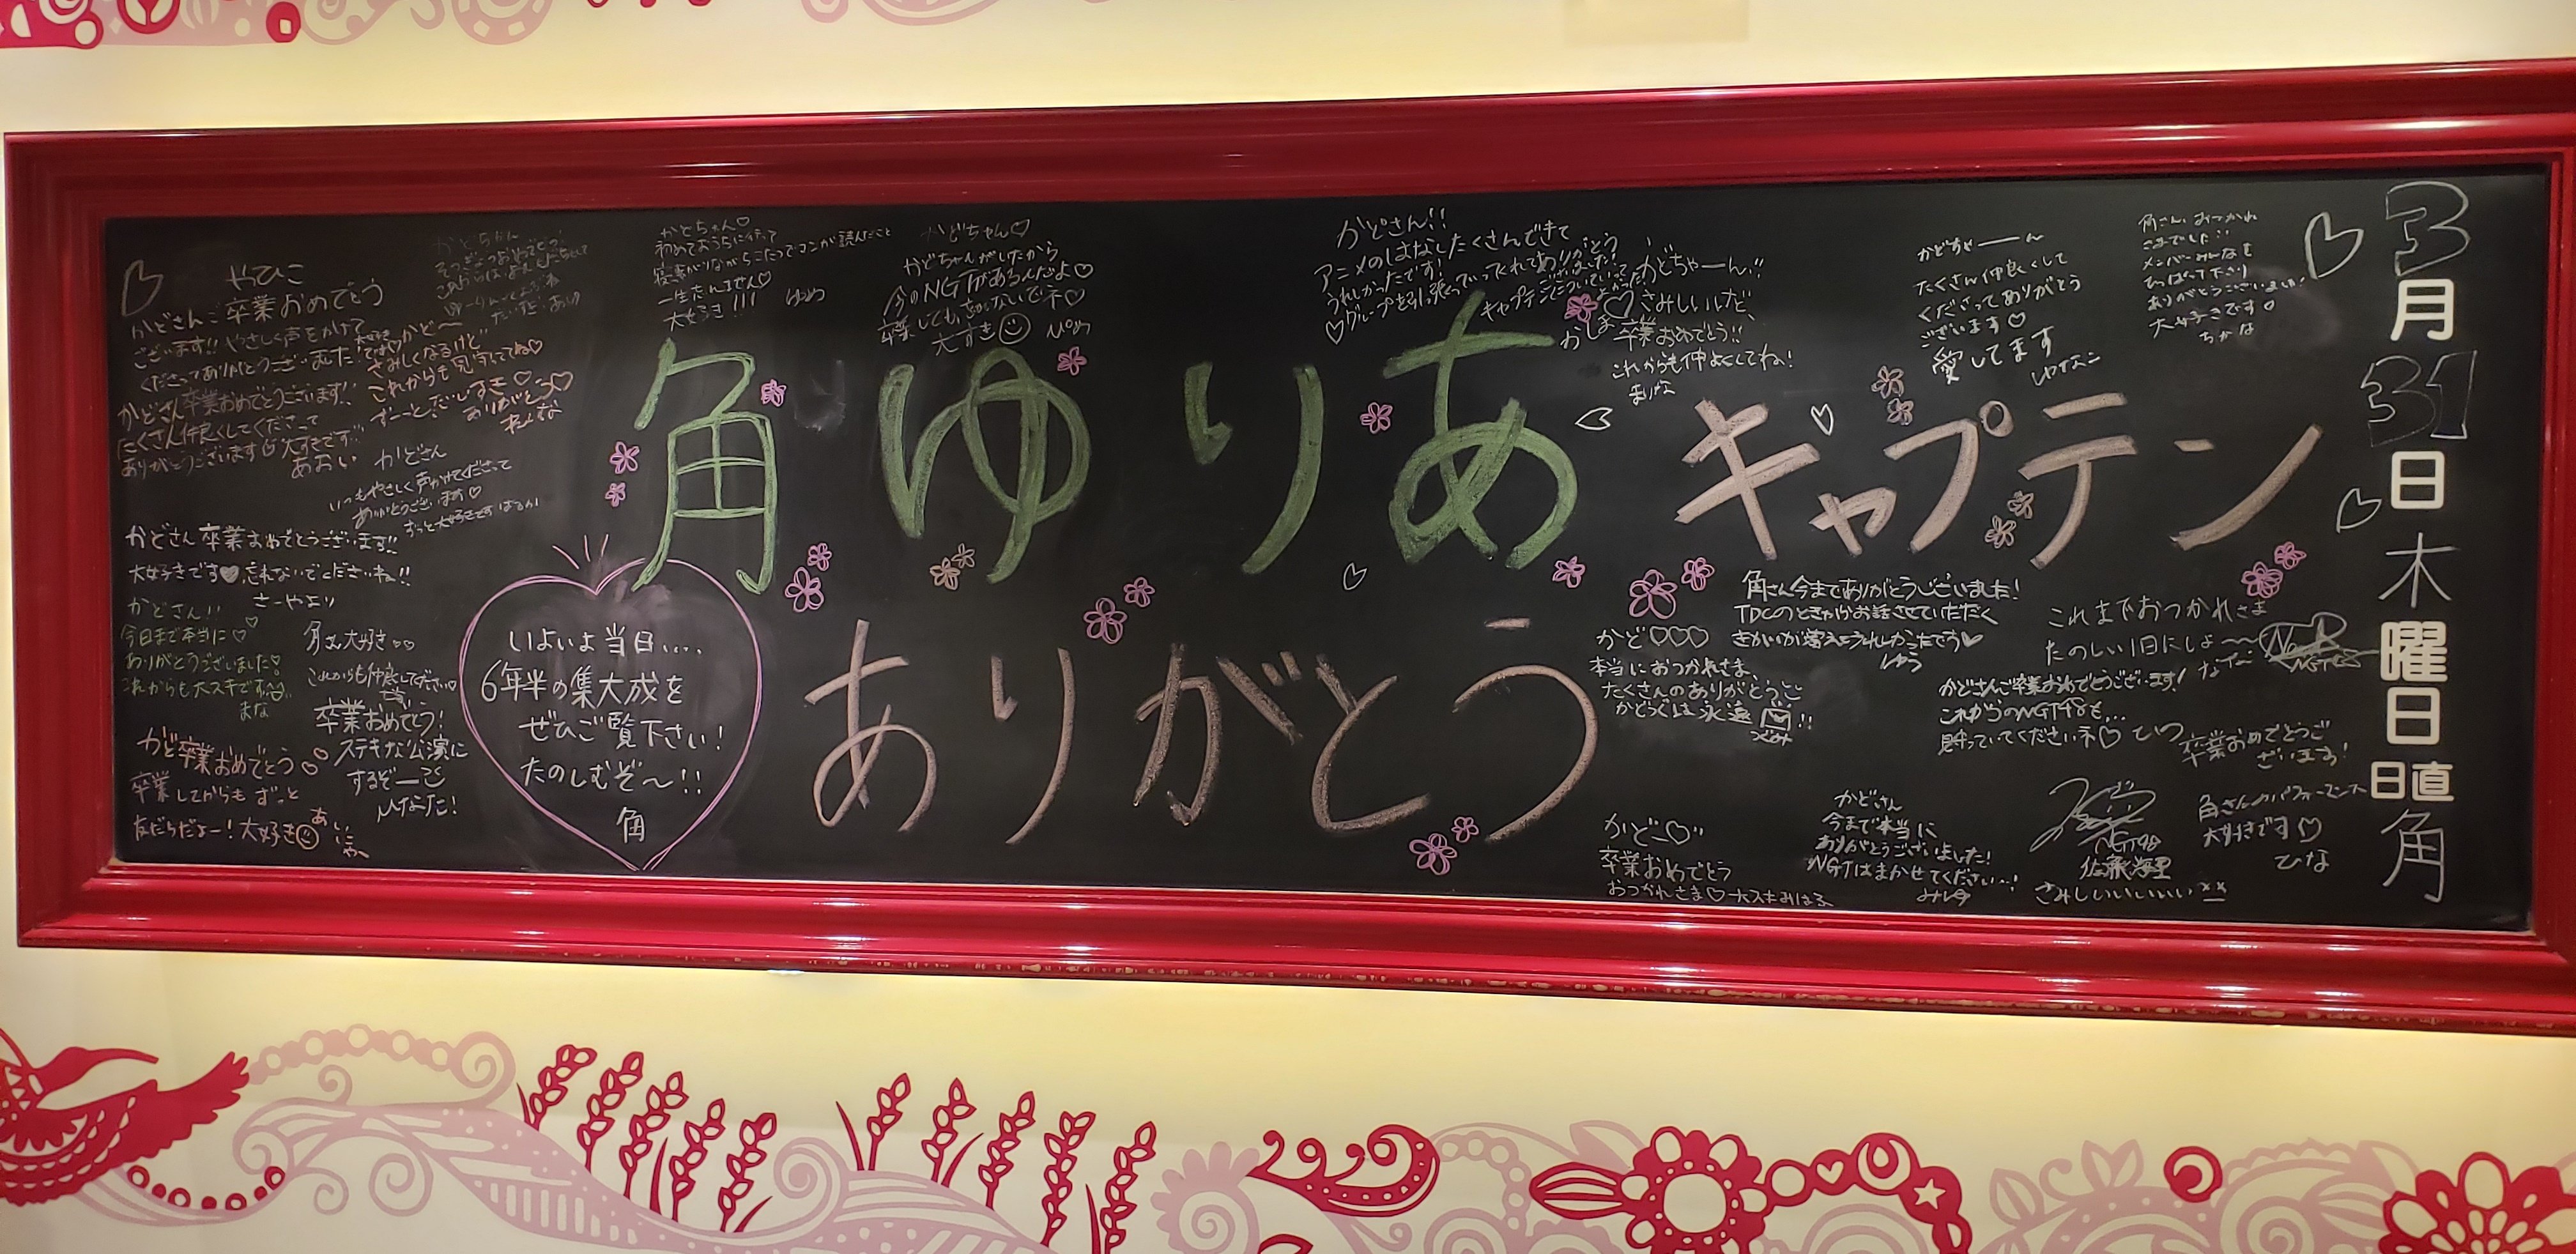 角ゆりあキャプテン
ありがとう
3月31日木曜日
日直角
いよいよ当日....
6年半の集大成を
ぜひご覧下さい!
たのしむぞ〜!!
角
やひこ
かどさんご卒業おめでとう
ございます!! やさしく声をかけて
くださってありがとうございました!
かど〜
さみしくなるけど
これからも見守っててね♡
ずーっとだいすき♡
ありがとう♡
かどさん卒業おめでとうございます!!
たくさん仲良くしてくださって
ありがとうございます
大すきです
あおい
かどさん
いつもやさしく声かけてくださって
ありがとうございます♡
ずっと大好きです はるか
かどさん卒業おめでとうございます!!
大好きです♥忘れないでくださいね!!
さーやより
かどさん!!
今日まで本当に♡
ありがとうございました
これからも大スキです
まな
角さん大好き
これからも仲良くしてください
卒業おめでとう!
ステキな公演に
するぞー
ひなた!
かど卒業おめでとう♡
卒業してからもずっと
友だちだよー!大好き
かとちゃん♡
初めておうちに行って
寝転がりながら二人でコンが読んだこと
一生忘れません♡
大好き!!! ゆめ
かどちゃん♡
かどちゃんがいたから
今のNGTがあるんだよ♡
卒業しても、忘れないでネ♡
大すき
かどさん!!
アニメのはなしたくさんできて
うれしかったです!
♡グループを引っ張っていってくれてありがとう
ございました!
かどちゃーん!!
さみしいけど、
卒業おめでとう!!
これからも仲よくしてね!
まりな
かどちゃーーん
たくさん仲良くして
くださってありがとう
ございます♡
愛してます
ゆなこ
角さん、おつかれ
さまでした!!
メンバーみんなを
ひっぱって下さり
ありがとうございました!
大好きです
ちかな
角さん今までありがとうございました!
TDCのときからお話させていただく
うれしかったです♥
ゆう
かど♡♡♡
本当におつかれさま、
たくさんのありがとうを
かどぐみは永遠!!
これまでおつかれさま
たのしい1日にしよ〜
かどさんご卒業おめでとうございます!
これからのNGT48も...
見守っていてくださいネ♡
卒業おめでとうご
ざいます!
角さんのパフォーマンス
大好きです♡
ひな
かど〜♡
卒業おめでとう
おつかれさま♡大スキ みはる
かどさん
今まで本当に
ありがとうございました!
NGTはまかせてください...!
NGT48
佐藤海里
さみしいいいいい